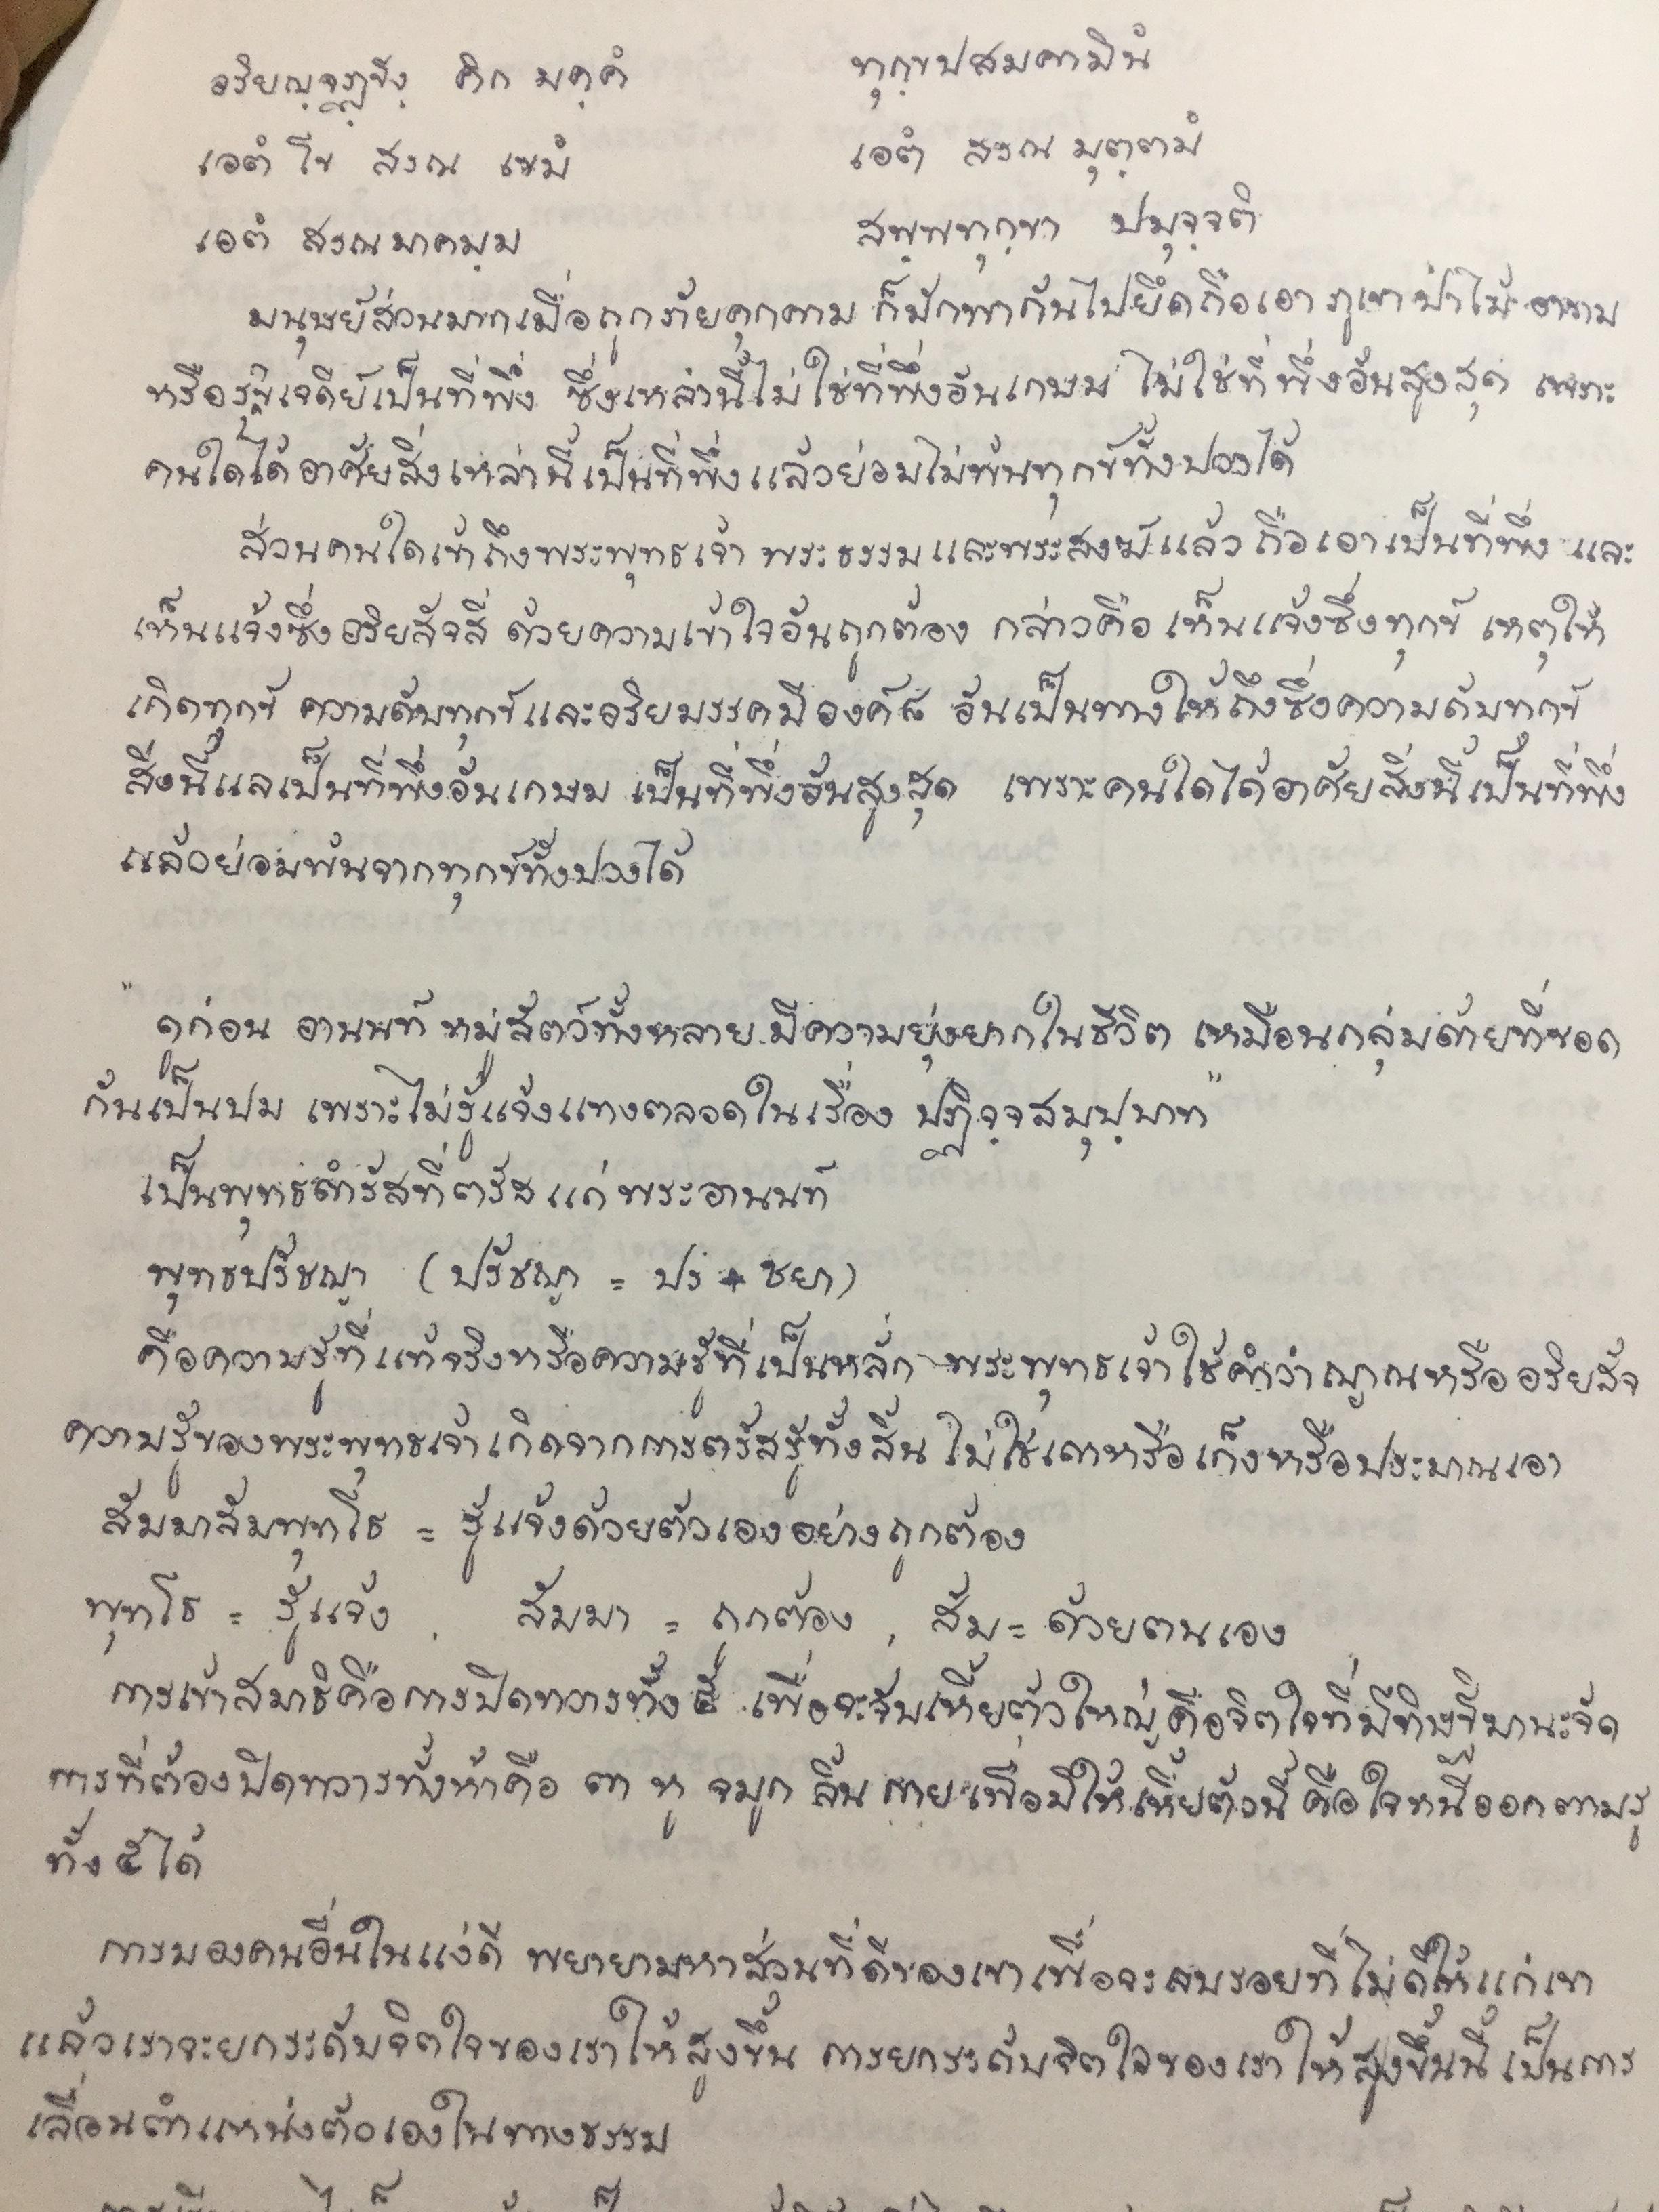 อริยญฺจฏฺฐงฺคิก มคฺคํ ทุกฺขปสมคามินํ
เอตํ โข สรณ เขมํ เอตํ สรณ มุตฺตมํ
เอตํ สรณมาคมฺม สพฺพทุกฺขา ปมุจฺจติ
มนุษย์ส่วนมากเมื่อถูกภัยคุกคาม ก็มักพากันไปยึดถือเอา ภูเขา ป่าไม้ อาราม
หรือรุกขเจดีย์เป็นที่พึ่ง ซึ่งเหล่านี้ไม่ใช่ที่พึ่งอันเกษม ไม่ใช่ที่พึ่งอันสูงสุด เพราะ
คนใดได้อาศัยสิ่งเหล่านี้เป็นที่พึ่งแล้วย่อมไม่พ้นทุกข์ทั้งปวงได้
ส่วนคนใดเข้าถึงพระพุทธเจ้า พระธรรมและพระสงฆ์แล้ว ถือเอาเป็นที่พึ่ง และ
เห็นแจ้งซึ่งอริยสัจสี่ ด้วยความเข้าใจอันถูกต้อง กล่าวคือ เห็นแจ้งซึ่งทุกข์ เหตุให้
เกิดทุกข์ ความดับทุกข์และอริยมรรคมีองค์๘ อันเป็นทางให้ถึงซึ่งความดับทุกข์
สิ่งนี้แลเป็นที่พึ่งอันเกษม เป็นที่พึ่งอันสูงสุด เพราะคนใดได้อาศัยสิ่งนี้เป็นที่พึ่ง
แล้วย่อมพ้นจากทุกข์ทั้งปวงได้
"ดูก่อน อานนท์ หมู่สัตว์ทั้งหลาย มีความยุ่งยากในชีวิต เหมือนกลุ่มด้ายที่ขอด
กันเป็นปม เพราะไม่รู้แจ้งแทงตลอดในเรื่อง ปฏิจฺจสมุปฺบาท"
เป็นพุทธดำรัสที่ตรัสแก่พระอานนท์
พุทธปรัชญา (ปรัชญา = ปร + ชยา)
คือความรู้ที่แท้จริงหรือความรู้ที่เป็นหลัก พระพุทธเจ้าใช้คำว่าญาณหรืออริยสัจ
ความรู้ของพระพุทธเจ้าเกิดจากการตรัสรู้ทั้งสิ้น ไม่ใช่เดาหรือเก็งหรือประมาณเอา
สัมมาสัมพุทโธ = รู้แจ้งด้วยตัวเองอย่างถูกต้อง
พุทโธ = รู้แจ้ง , สัมมา = ถูกต้อง , สัม = ด้วยตนเอง
การเข้าสมาธิคือการปิดทวารทั้ง ๕ เพื่อจะจับเหี้ยตัวใหญ่คือจิตใจที่มีทิษฐิมานะจัด
การที่ต้องปิดทวารทั้งห้าคือ ตา หู จมูก ลิ้น กาย เพื่อมิให้เหี้ยตัวนี้คือใจหนีออกตามรู
ทั้ง ๕ ได้
การมองคนอื่นในแง่ดี พยายามหาส่วนที่ดีของเขาเพื่อจะลบรอยที่ไม่ดีให้แก่เขา
แล้วเราจะยกระดับจิตใจของเราให้สูงขึ้น การยกระดับจิตใจของเราให้สูงขึ้นนี้ เป็นการ
เลื่อนตำแหน่งตัวเองในทางธรรม